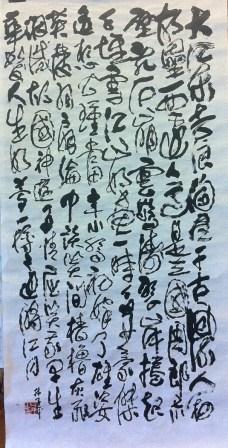 大江東去浪淘盡千古風流人物
故壘西邊人道是三國周郎赤
壁亂石崩雲驚濤裂岸捲起
千堆雪江山如畫一時多少豪傑
遙想公瑾當年小喬初嫁了雄姿
英發羽扇綸巾談笑間檣櫓灰飛
煙滅故國神遊多情應笑我早生
華髮人生如夢一樽還酹江月